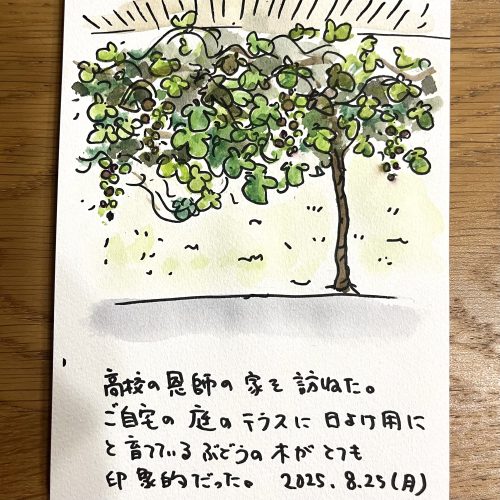 高校の恩師の家を訪ねた。
ご自宅の庭のテラスに日よけ用に
と育てているぶどうの木がとても
印象的だった。 2025. 8.25(月)